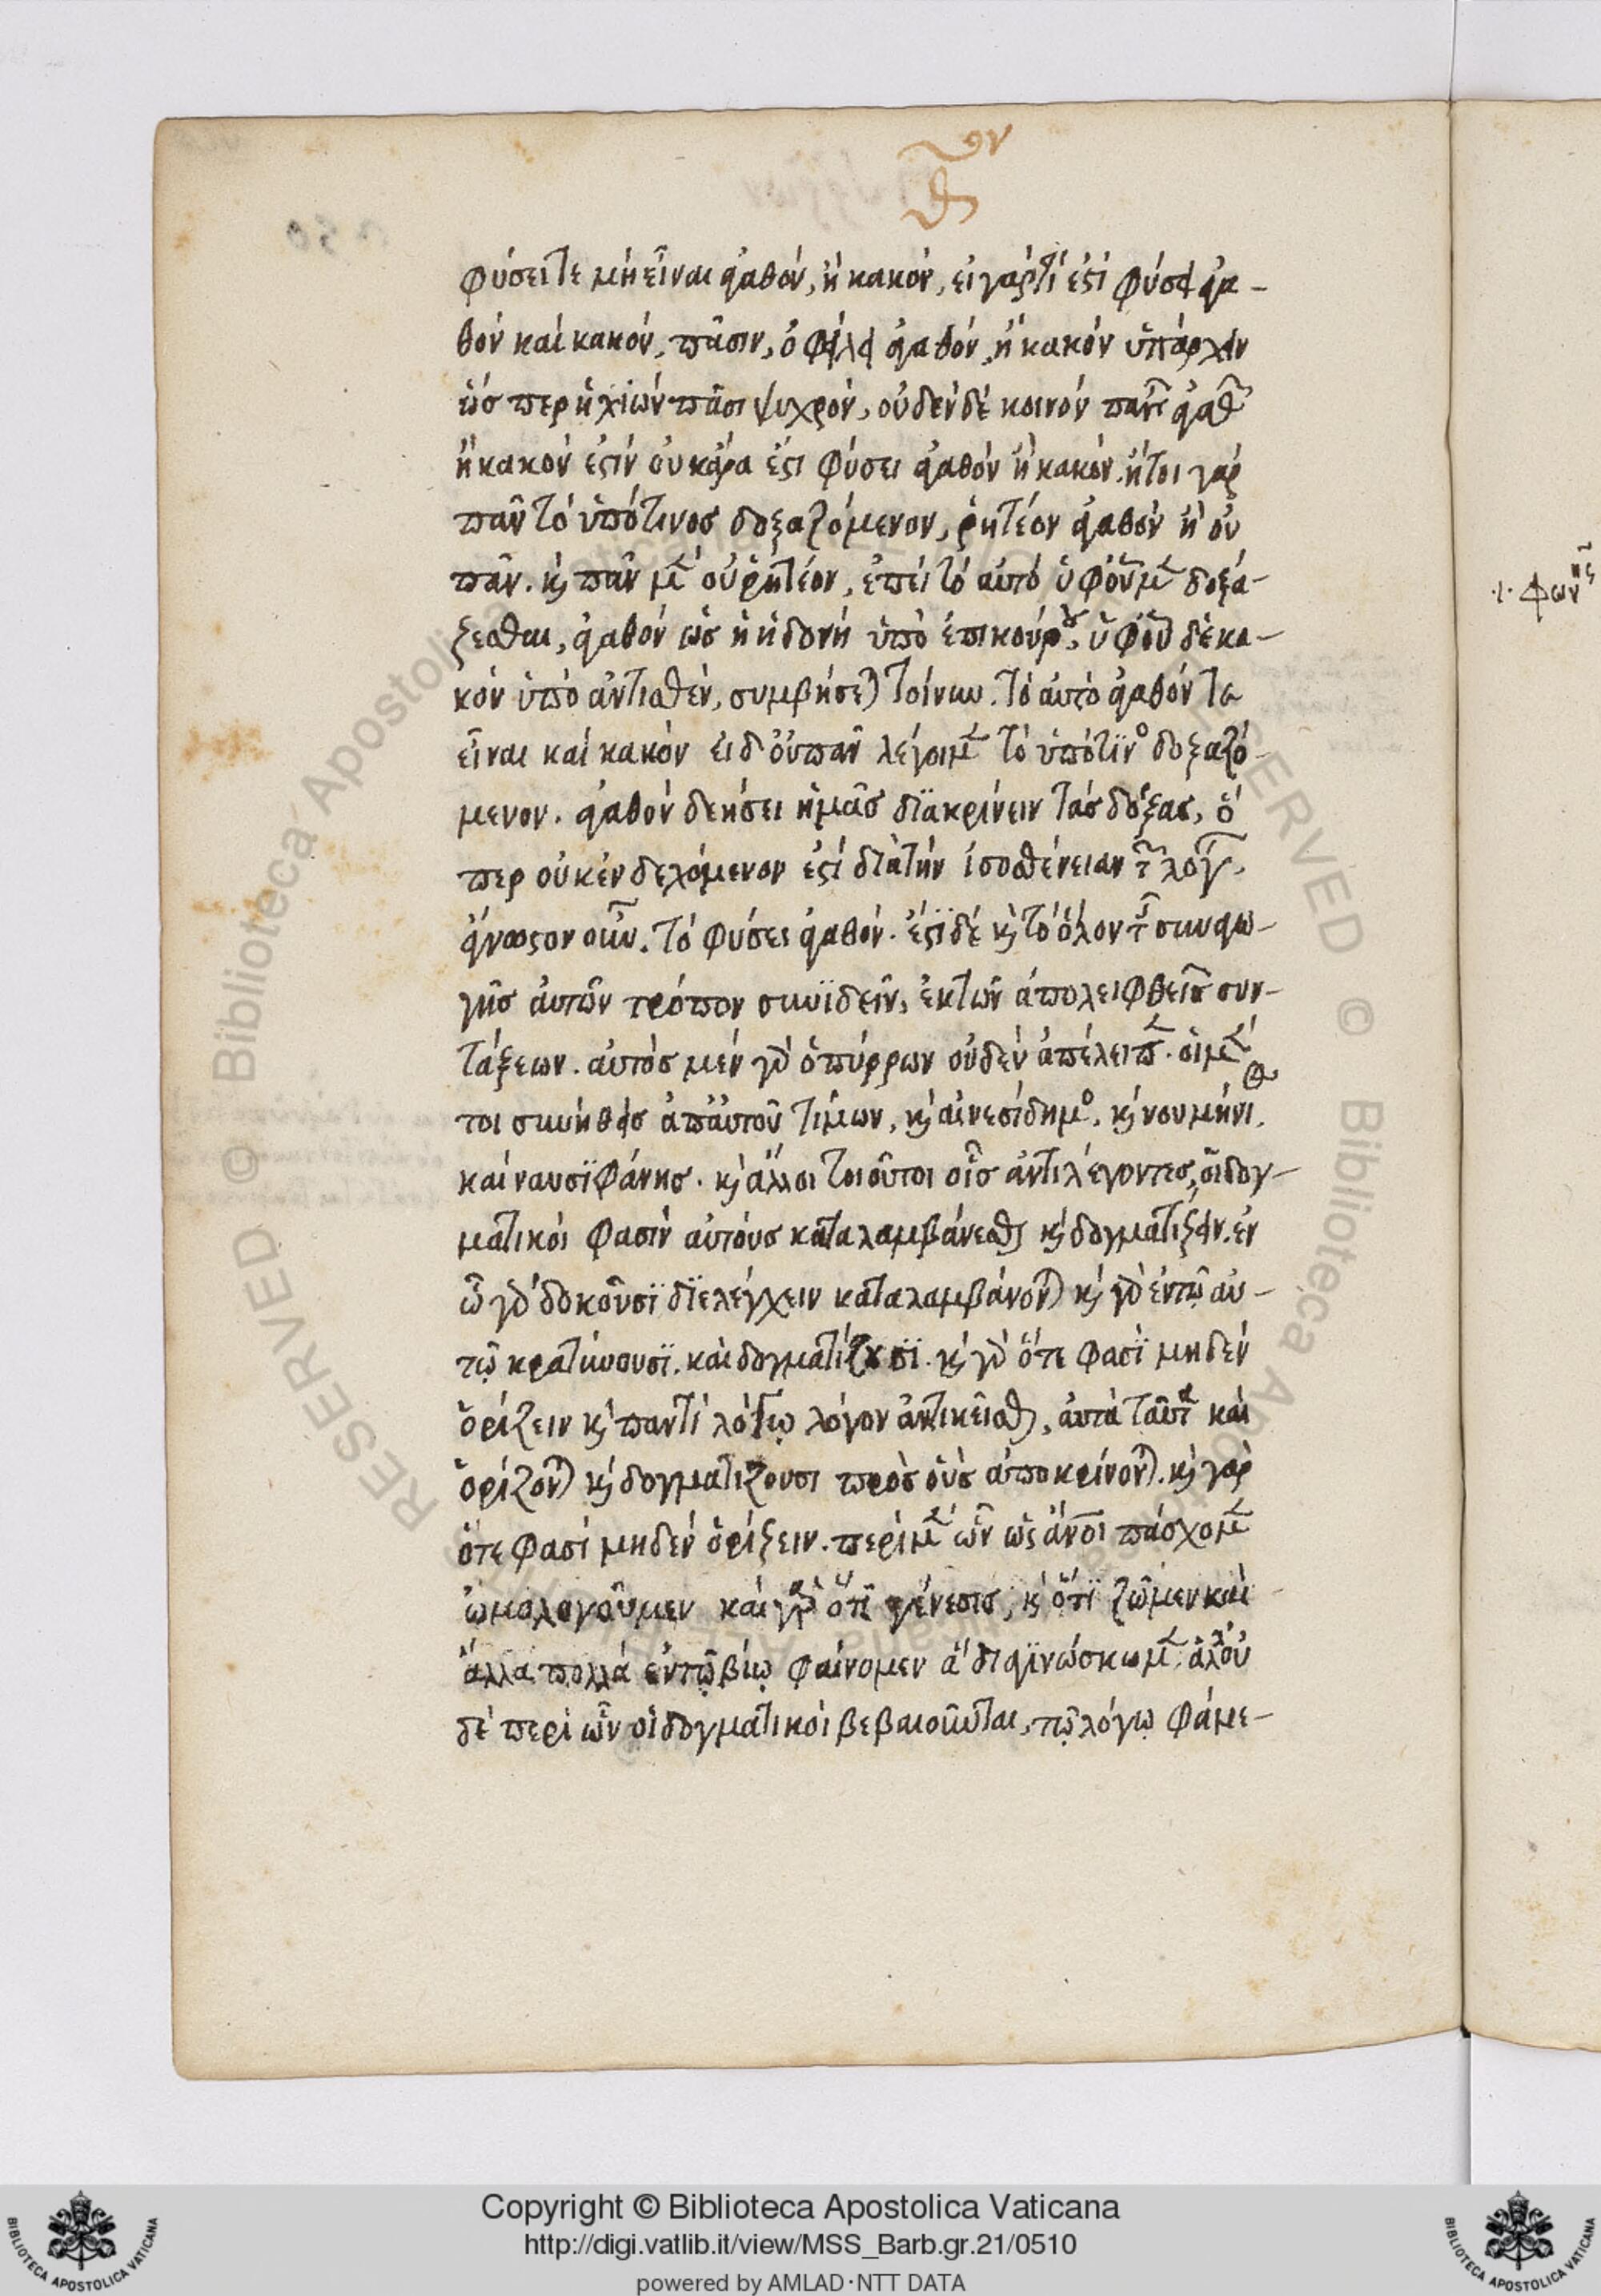 φύσει τε μὴ εἶναι ἀγαθόν, ἢ κακόν, εἰ γάρ τί ἐστι φύσει ἀγα-
θόν καὶ κακόν, πᾶσιν, ὀφείλει ἀγαθόν, ἢ κακόν ὑπάρχειν
ὥσπερ ἡ χιών πᾶσι ψυχρόν, οὐδέν δέ κοινόν πάντων ἀγαθόν
ἢ κακόν ἐστίν οὐκ ἄρα ἔστι φύσει ἀγαθόν ἢ κακόν. ἤτοι γάρ
πᾶν τό ὑπό τινος δοξαζόμενον, ῥητέον ἀγαθόν ἢ οὐ
πᾶν. καὶ πᾶν μέν οὐ ῥητέον, ἐπεί τό αὐτό ὑφ' οὗ μέν δοξά-
ζεσθαι, ἀγαθόν ὡς ἡ ἡδονή ὑπό ἐπικούρου, ὑφ' οὗ δὲ κα-
κόν ὑπό ἀντισθέν, συμβήσεται τοίνυν. τό αὐτό ἀγαθόν τε
εἶναι καί κακόν εἰ δ' οὐ πᾶν λέγοιμεν τό ὑπό τινος δοξαζό-
μενον. ἀγαθόν δεήσει ἡμᾶς διακρίνειν τάς δόξας, ὅ
περ οὐκ ἐνδεχόμενον ἐστί διά τήν ἰσοσθένειαν τῶν λόγων.
ἄγνωστον οὖν. τό φύσει ἀγαθόν. ἔστι δέ καὶ τό ὅλον τῆς συναγω-
γῆς αὐτῶν τρόπον συνιδεῖν, ἐκ τῶν ἀπολειφθεισῶν συν-
τάξεων. αὐτός μέν γὰρ ὁ πύρρων οὐδέν ἀπέλειπεν. οἱ μέν
τοι συνήθεις ἀπ' αὐτοῦ τίμων, καὶ αἰνεσίδημος, καὶ νουμήνιος
καί ναυσιφάνης. καὶ ἄλλοι τοιοῦτοι οἷς ἀντιλέγοντες, οἱ δογ-
ματικοί φασίν αὐτούς καταλαμβάνεσθαι καὶ δογματίζειν. ἐν
ᾧ γὰρ δοκοῦσι διελέγχειν καταλαμβάνονται καὶ γὰρ ἐν τῷ αὐ-
τῷ κρατύνουσι. καὶ δογματίζουσι. καὶ γὰρ ὅτε φασί μηδέν
ὁρίζειν καὶ παντί λόγῳ λόγον ἀντικεῖσθαι, αὐτά ταῦτα καὶ
ὁρίζονται καὶ δογματίζουσι πρὸς οὕς ἀποκρίνονται. καὶ γάρ
ὅτε φασί μηδέν ὁρίζειν. περί μέν ὧν ὡς ἄνθρωποι πάσχομεν
ὡμολογοῦμεν καὶ γὰρ ὅτι γένεσις, καὶ ὅτι ζῶμεν καὶ
ἄλλα πολλά ἐν τῷ βίῳ φαίνομεν ἅ διαγινώσκωμεν. ἀλλ' οὐ
δέ περί ὧν οἱ δογματικοί βεβαιοῦνται, τῷ λόγῳ φάμε-
Copyright © Biblioteca Apostolica Vaticana
http://digi.vatlib.it/view/MSS_Barb.gr.21/0510
powered by AMLAD·NTT DATA